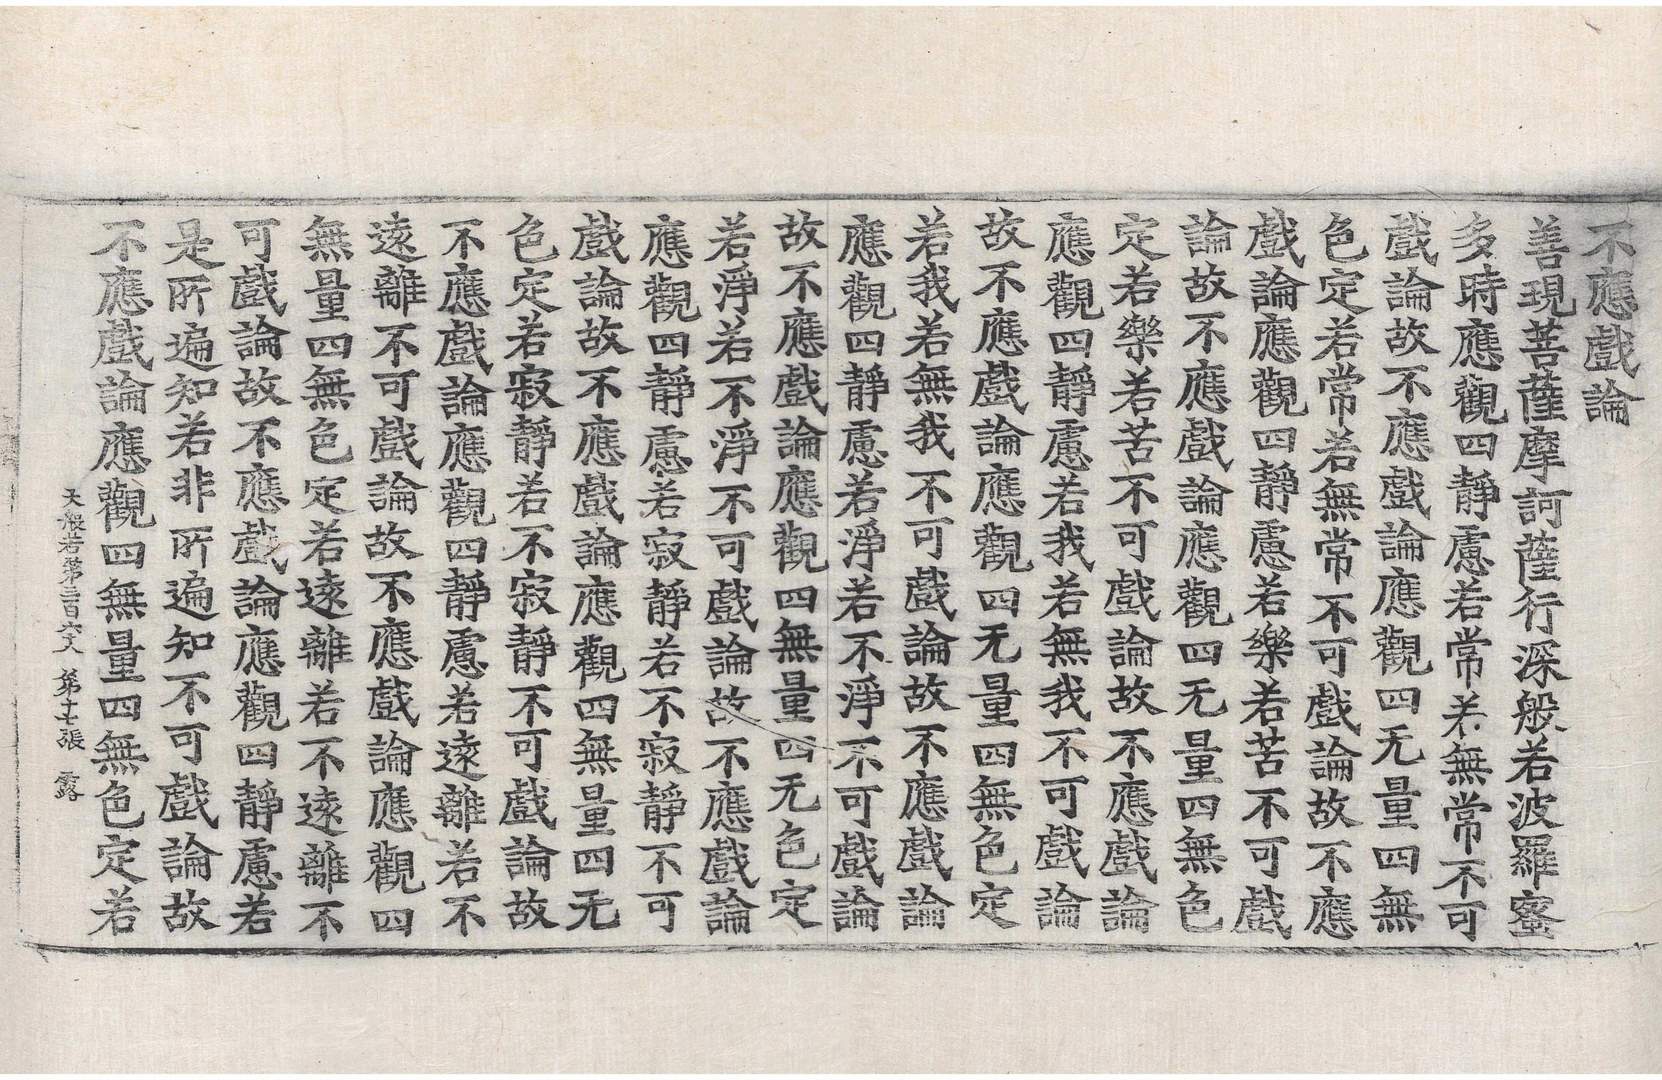 不應戲論
善現菩薩摩訶薩行深般若波羅蜜
多時應觀四靜慮若常若無常不可
戲論故不應戲論應觀四无量四無
色定若常若無常不可戲論故不應
戲論應觀四靜慮若樂若苦不可戲
論故不應戲論應觀四无量四無色
定若樂若苦不可戲論故不應戲論
應觀四靜慮若我若無我不可戲論
故不應戲論應觀四无量四無色定
若我若無我不可戲論故不應戲論
應觀四靜慮若淨若不淨不可戲論
故不應戲論應觀四無量四无色定
若淨若不淨不可戲論故不應戲論
應觀四靜慮若寂靜若不寂靜不可
戲論故不應戲論應觀四無量四无
色定若寂靜若不寂靜不可戲論故
不應戲論應觀四靜慮若遠離若不
遠離不可戲論故不應戲論應觀四
無量四無色定若遠離若不遠離不
可戲論故不應戲論應觀四靜慮若
是所遍知若非所遍知不可戲論故
不應戲論應觀四無量四無色定若
大般若第三百六 第十七張 露